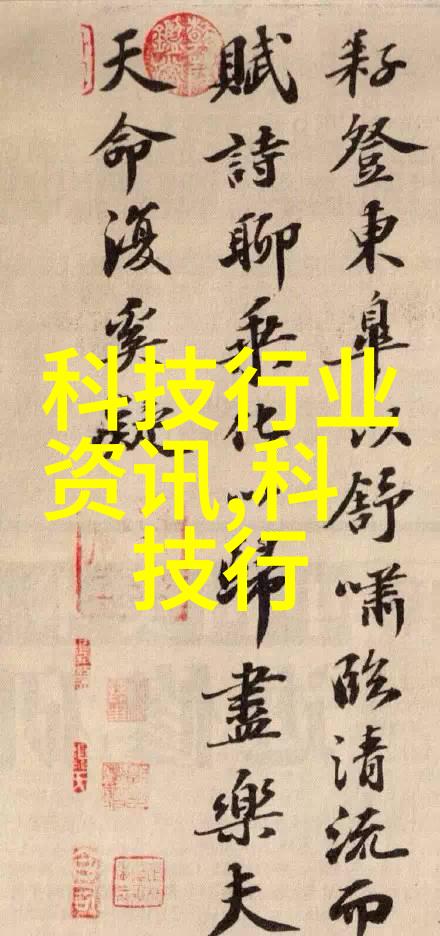 耔登東皐以舒嘯臨清流而
賦詩聊乘化以歸盡樂夫
天命復奚疑
科技行业
资讯,科
技行